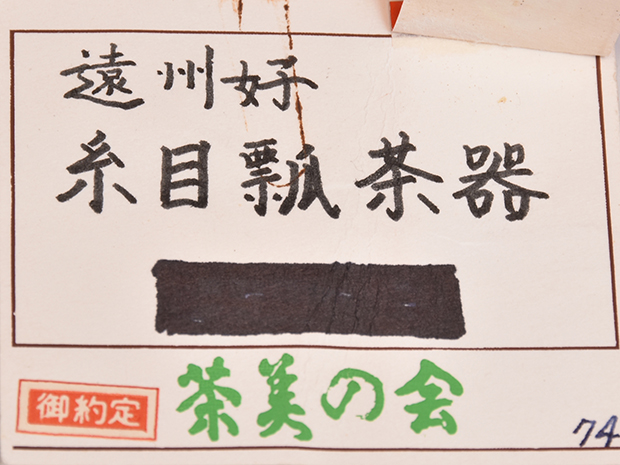 遠州好
糸目瓢茶器
御約定
茶美の会
74